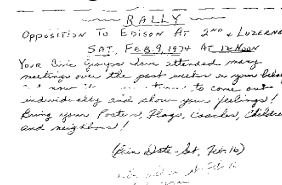 RALLY
OPPOSITION TO EDISON AT 2ND & LUZERNE
SAT, FEB, 9, 1974 AT 12 NOON
Your Civic Groups have attended many
meetings over the past weeks in your behalf
now to come out
individually and show your feelings!
Bring your Posters, Flags, Coaches, Children
and neighbors!
(Rain Date - Sat, Feb 16)